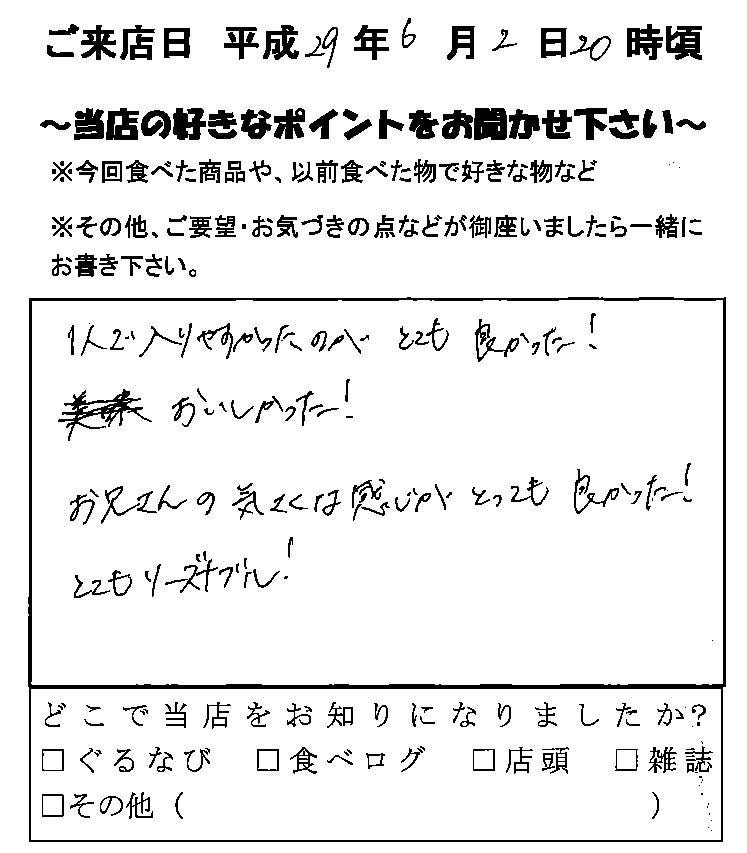 ご来店日 平成29年6月2日20時頃
~当店の好きなポイントをお聞かせ下さい~
※今回食べた商品や、以前食べた物で好きな物など
※その他、ご要望・お気づきの点などが御座いましたら一緒に
お書き下さい。
1人で入りやすかったのが とても 良かった!
おいしかった!
お兄さんの気さくな感じが とっても 良かった!
とてもリーズナブル!
どこで当店をお知りになりましたか?
□ぐるなび □食べログ □店頭 □雑誌
□その他( )